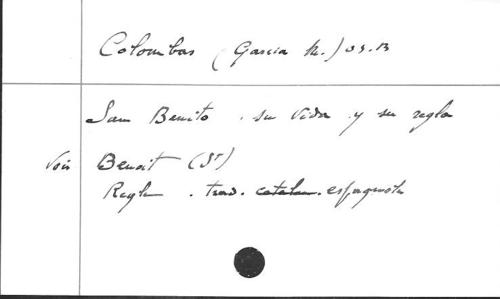 Colombas (Garcia M.) O.S.B
San Benito . su vida y su regla
Voir Benoit (St)
Regle . trad. catalan . espagnole